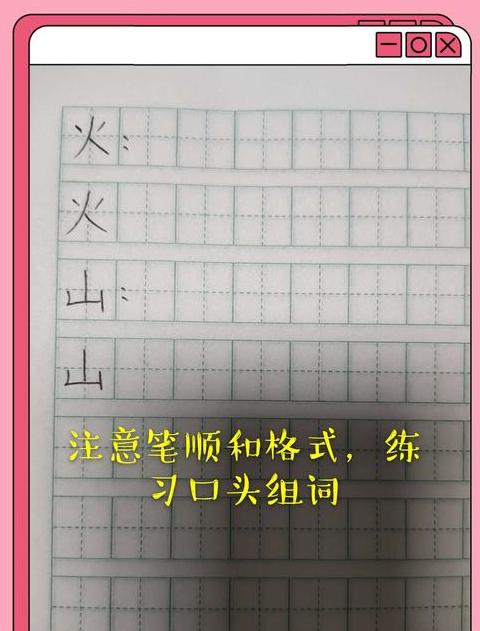 火：
火
山：
山
注意笔顺和格式，练
习口头组词